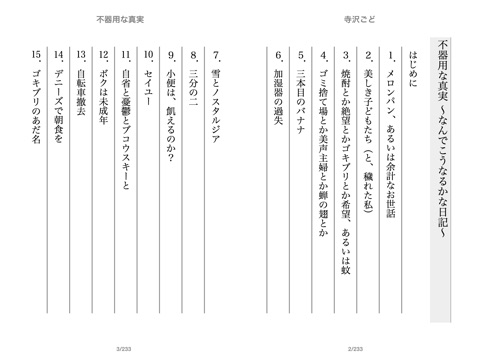 寺沢ごど
不器用な真実 〜なんでこうなるかな日記〜
はじめに
1. メロンパン、あるいは余計なお世話
2. 美しき子どもたち（と、穢れた私）
3. 焼酎とか絶望とかゴキブリとか希望、あるいは蚊
4. ゴミ捨て場とか美声主婦とか蟬の翅とか
5. 三本目のバナナ
6. 加湿器の過失
2/233
不器用な真実
7. 雪とノスタルジア
8. 三分の二
9. 小便は、飢えるのか？
10. セイユー
11. 自省と憂鬱とブコウスキーと
12. ボクは未成年
13. 自転車撤去
14. デニーズで朝食を
15. ゴキブリのあだ名
3/233